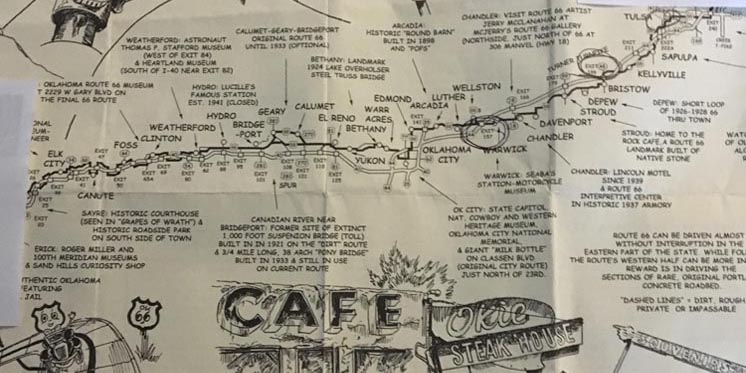 WEATHERFORD: ASTRONAUT
THOMAS P. STAFFORD MUSEUM
(WEST OF EXIT 84)
& HEARTLAND MUSEUM
(SOUTH OF I-40 NEAR EXIT 82)
CALUMET-GEARY-BRIDGEPORT
ORIGINAL ROUTE 66
UNTIL 1933 (OPTIONAL)
ARCADIA:
HISTORIC "ROUND BARN"
BUILT IN 1898
AND "POPS"
CHANDLER: VISIT ROUTE 66 ARTIST
JERRY MCCLANAHAN AT
MCJERRY'S ROUTE 66 GALLERY
(NORTHSIDE, JUST NORTH OF 66 AT
306 MANVEL (HWY 18)
BETHANY: LANDMARK
1924 LAKE OVERHOLSER
STEEL TRUSS BRIDGE
OKLAHOMA ROUTE 66 MUSEUM
2229 W GARY BLVD ON
THE FINAL 66 ROUTE
HYDRO: LUCILLE'S
FAMOUS STATION
EST. 1941 (CLOSED)
TULS
SAPULPA
KELLYVILLE
BRISTOW
TURNER TURNPIKE
DEPEW
STROUD
DAVENPORT
CHANDLER
WELLSTON
WARWICK
LUTHER
ARCADIA
EDMOND
OKLAHOMA
CITY
WARR
ACRES
BETHANY
YUKON
EL RENO
CALUMET
GEARY
BRIDGE
-PORT
HYDRO
WEATHERFORD
CLINTON
FOSS
ELK
CITY
CANUTE
SPUR
EXIT
157
DEPEW: SHORT LOOP
OF 1926-1928 66
THRU TOWN
STROUD: HOME TO THE
ROCK CAFE, A ROUTE 66
LANDMARK BUILT OF
NATIVE STONE
WARWICK: SEABA'S
STATION-MOTORCYCLE
MUSEUM
CHANDLER: LINCOLN MOTEL
SINCE 1939
& ROUTE 66
INTERPRETIVE CENTER
IN HISTORIC 1937 ARMORY
SAYRE: HISTORIC COURTHOUSE
(SEEN IN "GRAPES OF WRATH") &
HISTORIC ROADSIDE PARK
ON SOUTH SIDE OF TOWN
ERICK: ROGER MILLER AND
100TH MERIDIAN MUSEUMS
& SAND HILLS CURIOSITY SHOP
CANADIAN RIVER NEAR
BRIDGEPORT: FORMER SITE OF EXTINCT
1,000 FOOT SUSPENSION BRIDGE (TOLL)
BUILT IN IN 1921 ON THE "DIRT" ROUTE
& 3/4 MILE LONG, 38 ARCH "PONY BRIDGE"
BUILT IN 1933 & STILL IN USE
ON CURRENT ROUTE
OK CITY: STATE CAPITOL
NAT. COWBOY AND WESTERN
HERITAGE MUSEUM,
OKLAHOMA CITY NATIONAL
MEMORIAL
& GIANT "MILK BOTTLE"
ON CLASSEN BLVD
(ORIGINAL CITY ROUTE)
JUST NORTH OF 23RD.
ROUTE 66 CAN BE DRIVEN ALMOST
WITHOUT INTERRUPTION IN THE
EASTERN PART OF THE STATE WHILE FOL
THE ROUTE'S WESTERN HALF CAN BE MORE IN
REWARD IS IN DRIVING THE
SECTIONS OF RARE, ORIGINAL PORTL
CONCRETE ROADBED.
"DASHED LINES" = DIRT, ROUGH
PRIVATE OR IMPASSABLE
THENTIC OKLAHOMA
EATURING
JAIL
66
CAFE
Okie
STEAK HOUSE
SOUVENIRS